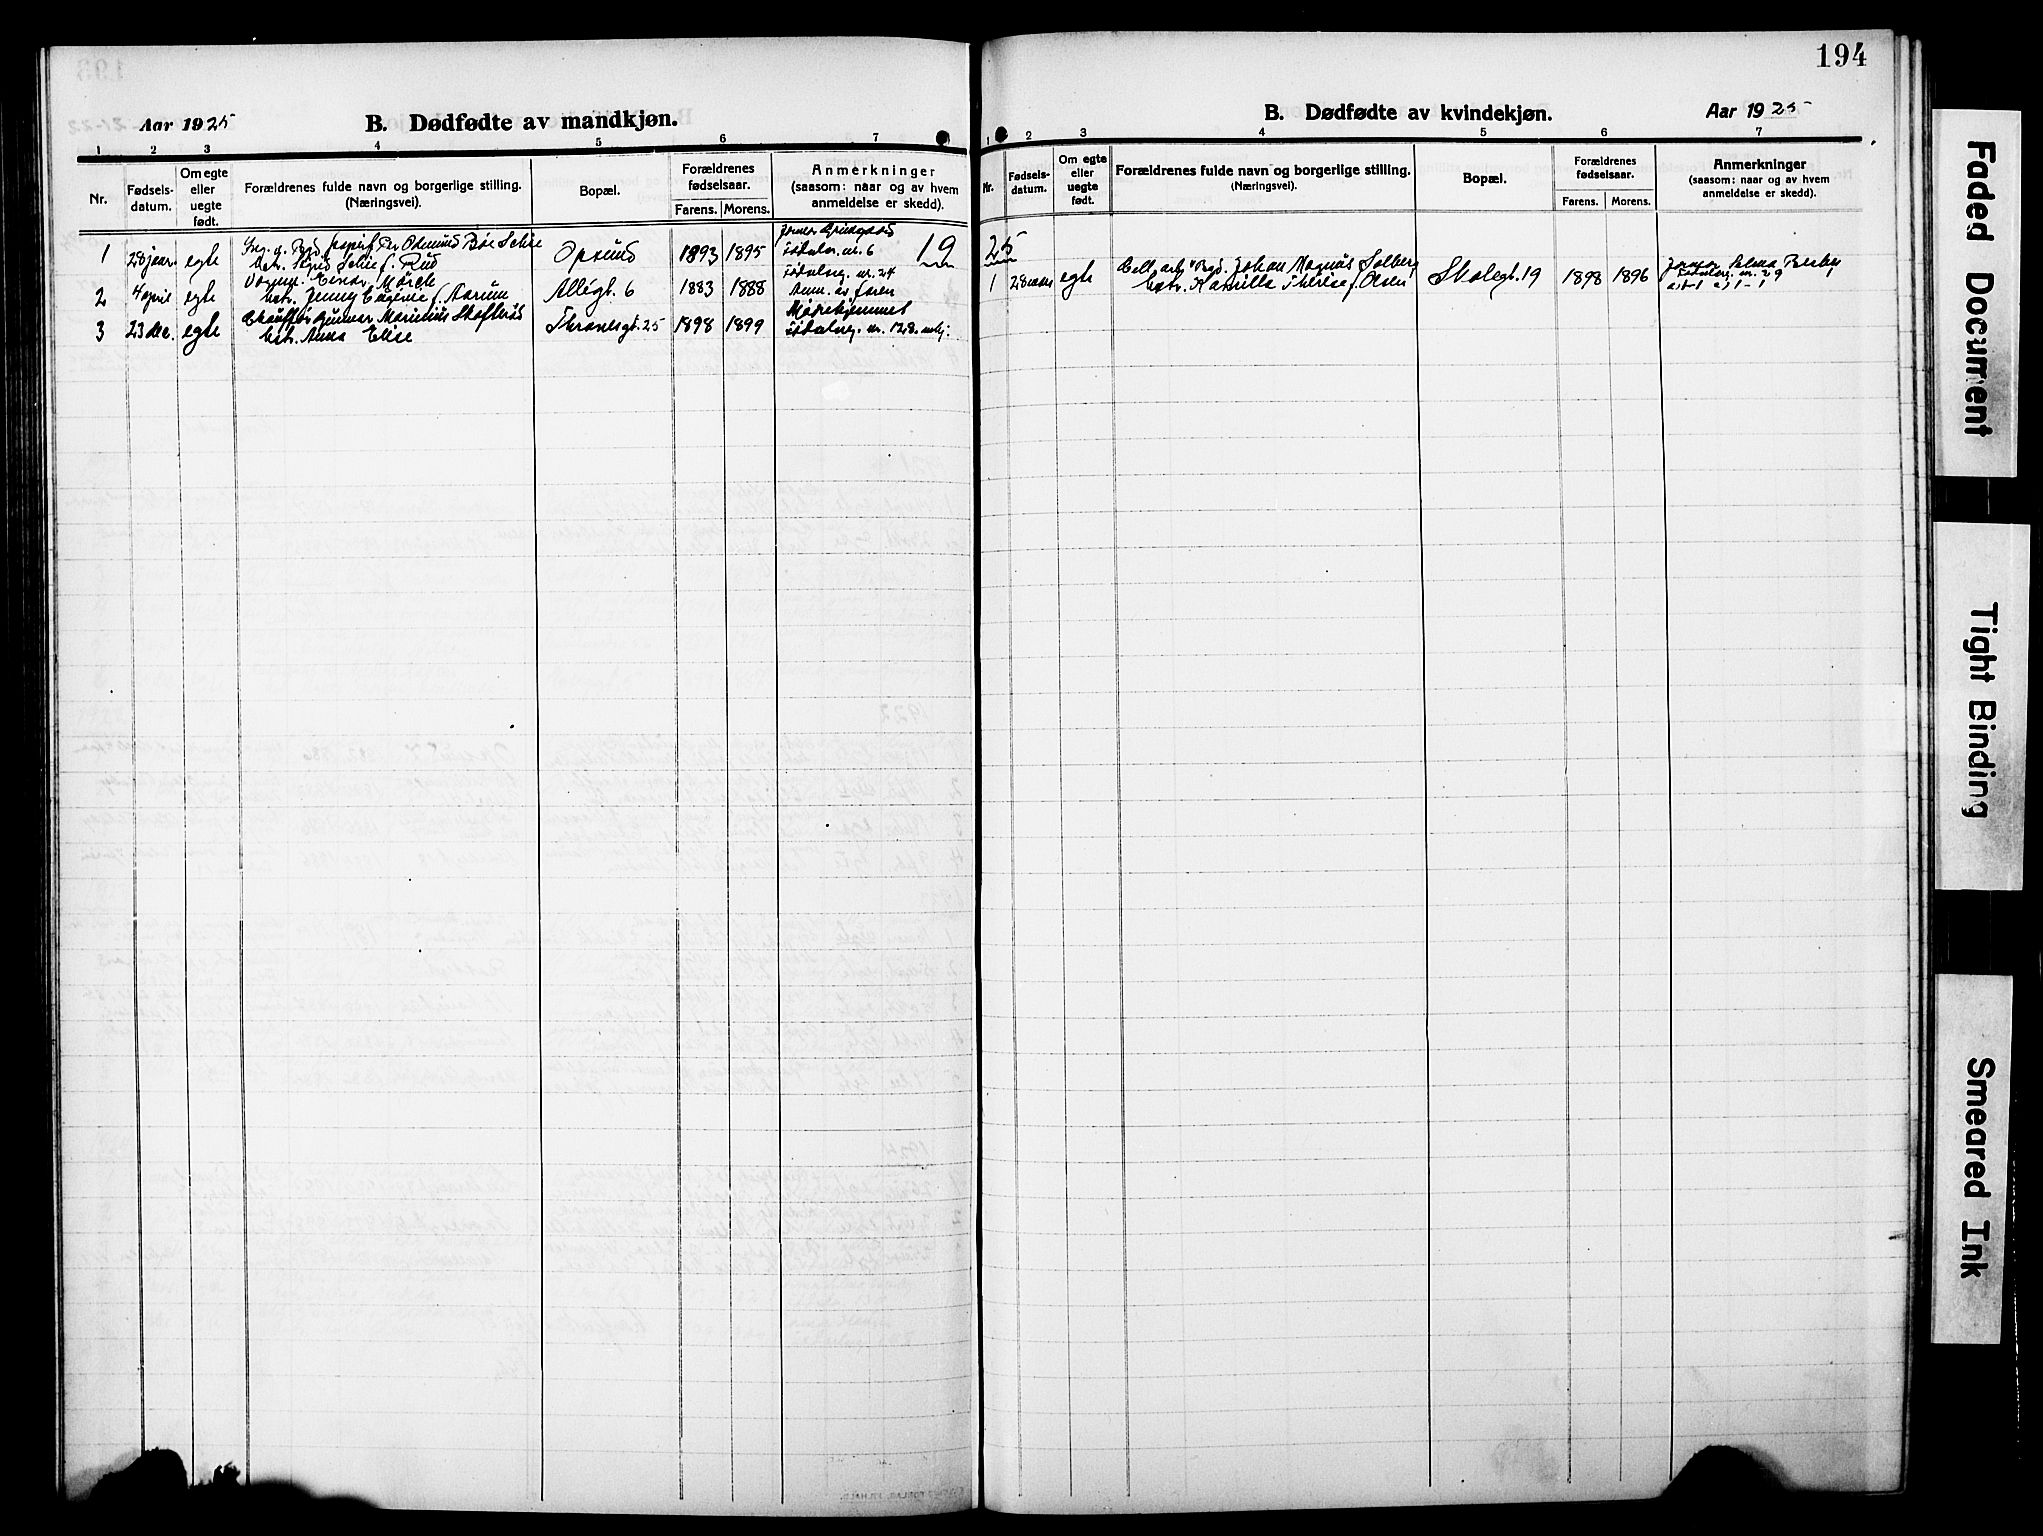 Aar 1925
B. Dødfødte av mandkjøn.
1 2 3 4 5 6 7
Nr.
Fødsels-
datum.
Om egte
eller
uegte
født.
Forældrenes fulde navn og borgerlige stilling.
(Næringsvei).
Bopæl.
Forældrenes
fødselsaar.
Farens. Morens.
Anmerkninger
(saasom: naar og av hvem
anmeldelse er skedd).
19
1 28 jan. egte
Bøe Schie
Schie f. Ruud
Opsund 1893 1895
nr. 6
2 4 april egte
Einar Mørch
hstr. Jenny Eugenie f. Aarum
Allégt. 6 1883 1888
nr. 24
Anm. av faren
3 23 dec. egte
Chauffør Gunnar Marinius
hstr. Anna Elise
Thranesgt. 25 1898 1899
nr. 128
194
B. Dødfødte av kvindekjøn.
Aar 1925
1 2 3 4 5 6 7
Nr.
Fødsels-
datum.
Om egte
eller
uegte
født.
Forældrenes fulde navn og borgerlige stilling.
(Næringsvei).
Bopæl.
Forældrenes
fødselsaar.
Farens. Morens.
Anmerkninger
(saasom: naar og av hvem
anmeldelse er skedd).
25
1 28 mars egte
Cell. arb. Johan Magnus Solberg
hstr. Kamilla Theresa f. Olsen
Skolegt. 19 1898 1896
nr. 29
Faded Document
Tight Binding
Smeared Ink